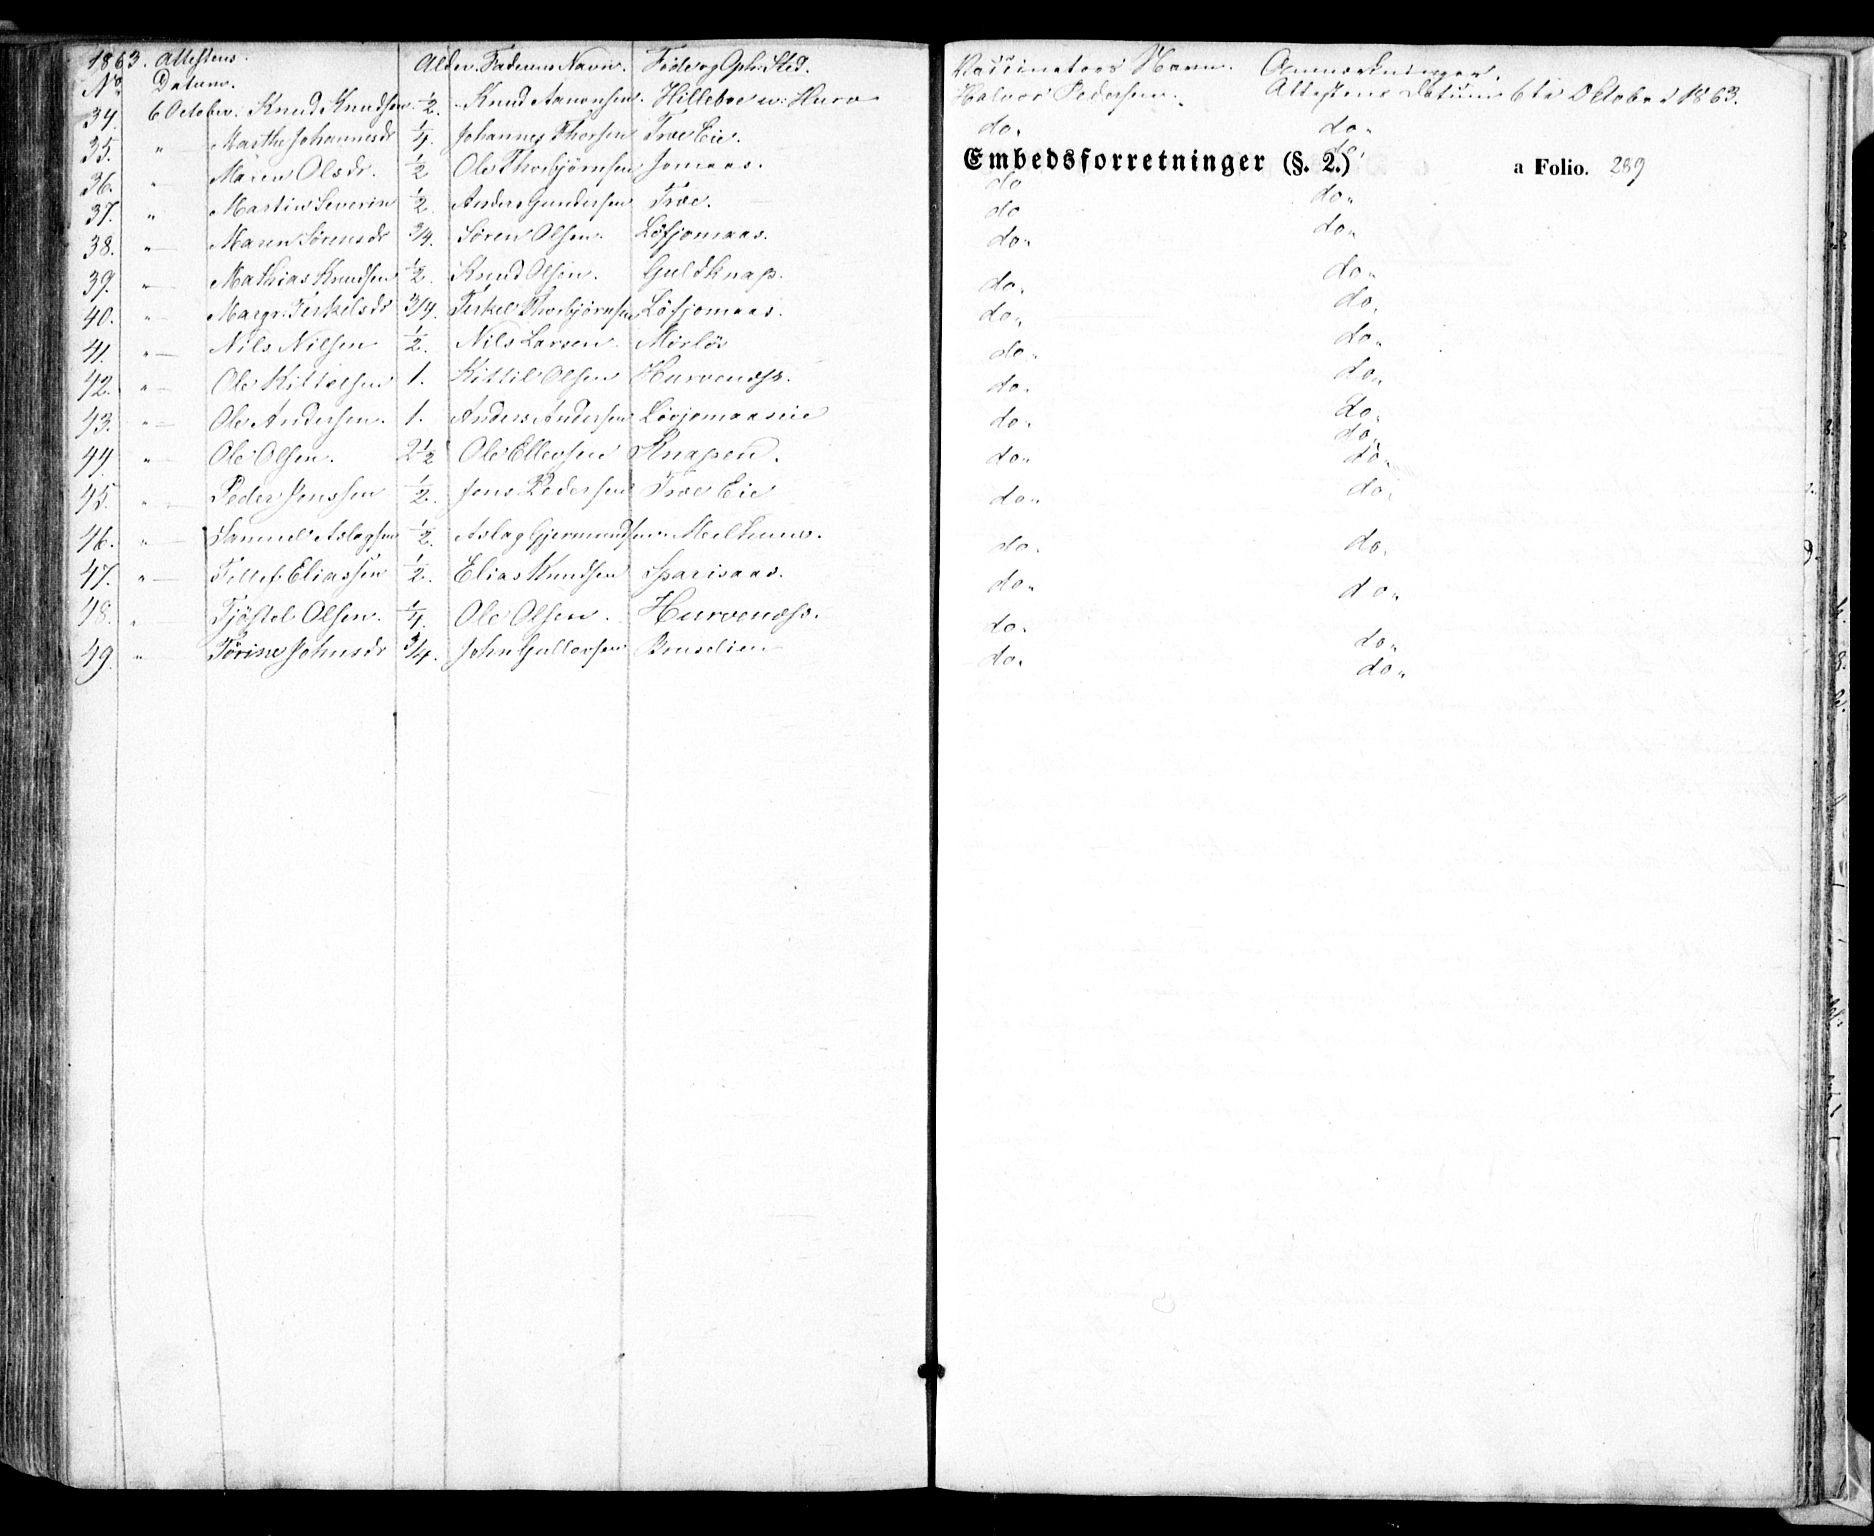 1863. Attestens Alder. Faderens Navn. Föde og Oph: Sted. Vaccinateurs Navn. Anmærkninger.
No Datum.
34. 6 October. Knud Knudsen ½. Knud Aanonsen. Hilleboe w. Hurv Halvor Pedersen. Attestens Datum 6te Oktober 1863.
35. " Marthe Johannesdr ¼. Johannes Thorsen Træ Eie. do. do.
36. " Maren Olsdr. ½ Ole Thorbjörnsen Jomaas. do.
Embedsforretninger (§. 2.) a Folio. 289
37. " Martin Severin ½. Anders Gundersen Træ. do do.
38. " Maren Sörensdr ¾. Sören Olsen. Löfjomaas. do. do.
39. " Mathias Knudsen ½. Knud Olsen. Guldknap. do. do.
40. " Margr. Terkelsdr ¾. Terkel Thorbjörnsen Löfjomaas. do. do.
41. " Nils Nilsen ½. Nils Larsen Mörlös do. do.
42. " Ole Kittelsen 1. Kittil Olsen Hurvendsp. do. do.
43. " Ole Andersen. 1. Anders Andersen Lövjomaaseie do. do.
44. " Ole Olsen. 2½ Ole Ellevsen Knapen. do. do.
45. " Peder Jenssen ½. Jens Pedersen Træ Eie do. do.
46. " Samuel Aslagsen ½. Aslag Gjermundsen Meelhuus. do. do.
47. " Tellef Eliassen ½. Elias Knudsen Sparisaas. do. do.
48. " Tjöstel Olsen. ¼. Ole Olsen. Hurvendsp. do. do.
49. " Törine Johnsdr ¾. John Gullovsen Bruselien do. do.